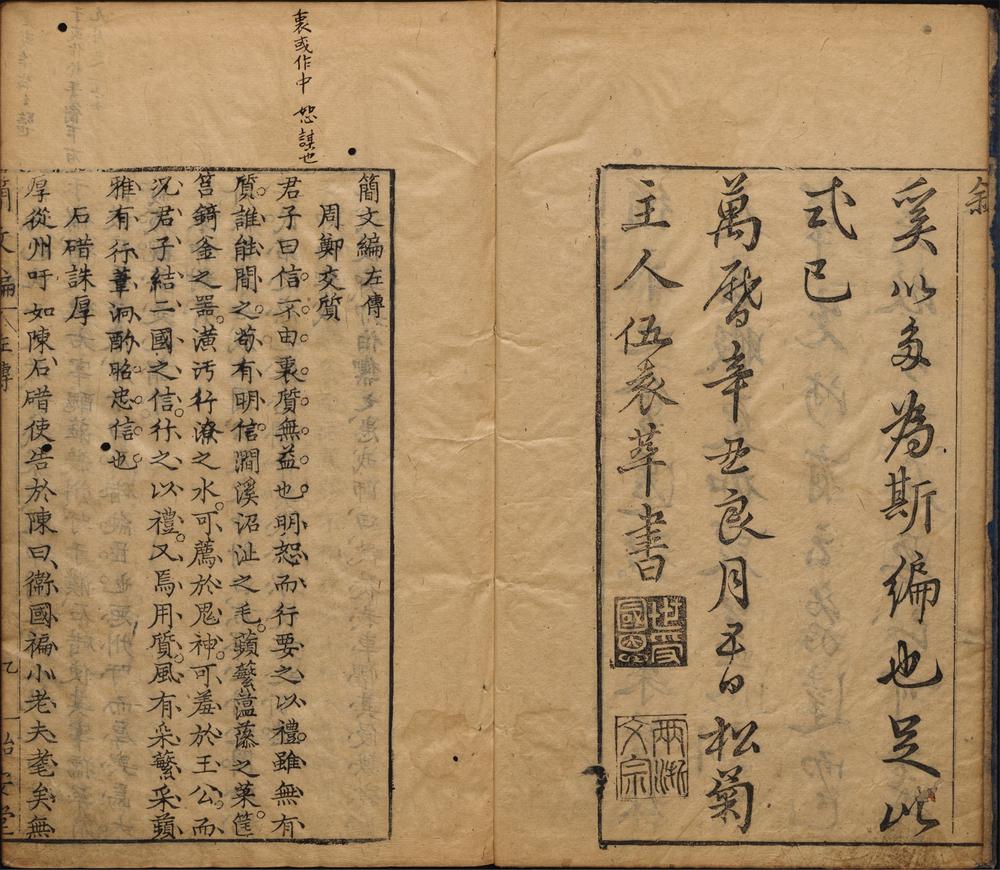 敘
奚以多為斯編也足此
弍已
萬曆辛丑良月五日松菊
主人伍袁萃書
世受
國恩
兩浙
文宗
裏或作中 恕謀也
簡文編左傳
周鄭交質
君子曰信不由衷質無益也明恕而行要之以禮雖無有
質誰能間之苟有明信澗溪沼沚之毛蘋蘩薀藻之菜筐
筥錡釜之器潢汙行潦之水可薦於鬼神可羞於王公而
況君子結二國之信行之以禮又焉用質風有采蘩采蘋
雅有行葦泂酌昭忠信也
石碏誅厚
厚從州吁如陳石碏使告於陳曰衞國褊小老夫耄矣無
簡文編 左傳 乙 貽安堂